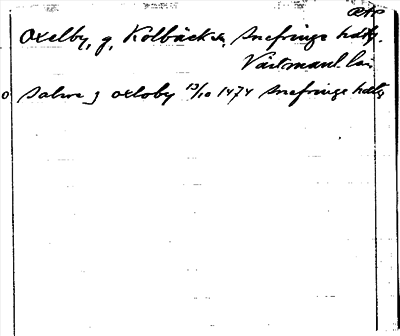 OAP
Oxelby, g, Kolbäcks, Snefringe hdtg.
Västmanl. län
o Salwe j oxloby 13/10 1474 Snefringe hdtg